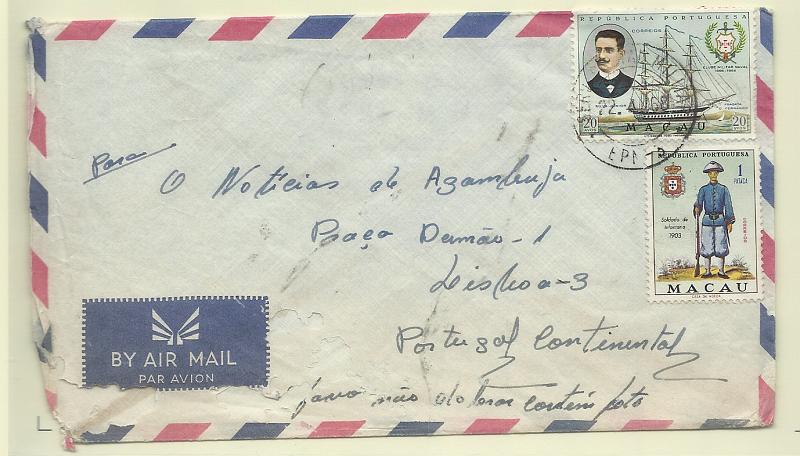 REPÚBLICA PORTUGUESA
CORREIOS
CLUBE MILITAR NAVAL
1866-1966
FRAGATA
D. FERNANDO
20
MACAU
20
REPÚBLICA PORTUGUESA
1
PATACA
Soldado de
infantaria
1903
MACAU
CASA DA MOEDA
Para
O Notícias de Azambuja
Praça Damão-1
Lisboa-3
Portugal Continental
favor não dobrar contém foto
BY AIR MAIL
PAR AVION